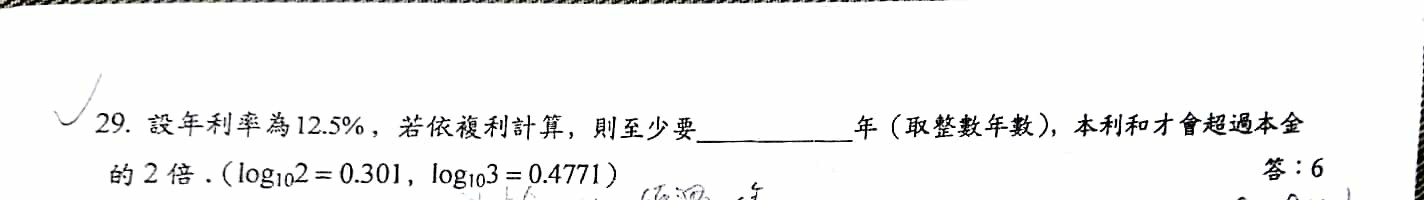 29. 設年利率為12.5%，若依複利計算，則至少要__________年（取整數年數），本利和才會超過本金
的 2 倍．（log₁₀2 = 0.301，log₁₀3 = 0.4771）
答：6